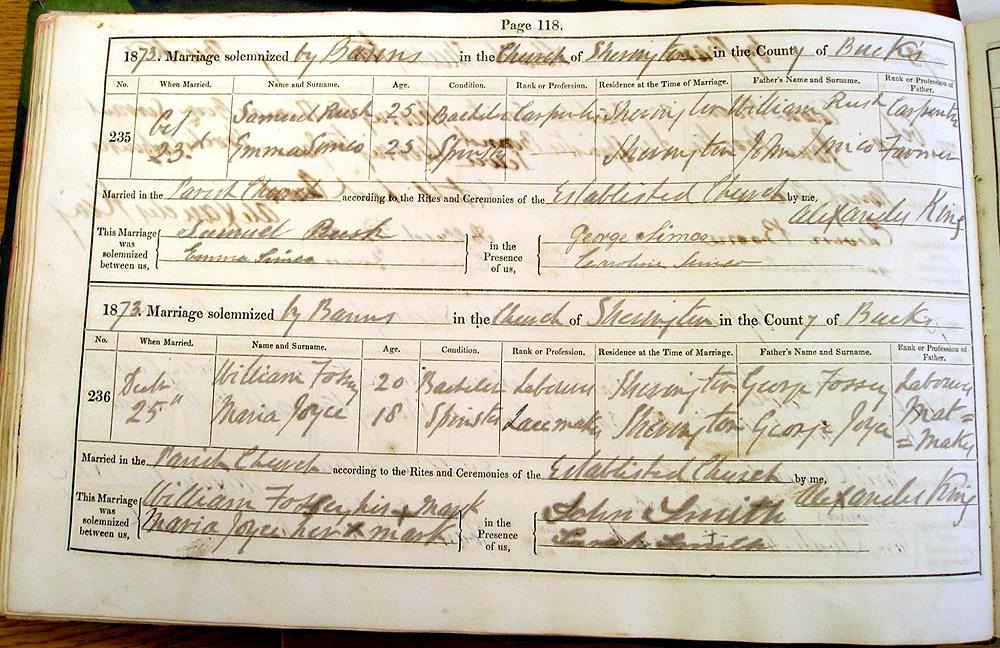 Page 118.
1873. Marriage solemnized by Banns in the Church of Sherington in the County of Bucks
No. When Married. Name and Surname. Age. Condition. Rank or Profession. Residence at the Time of Marriage. Father's Name and Surname. Rank or Profession of Father.
Samuel Rush 25 Bachelor Carpenter Sherington William Rush Carpenter
235 Oct 23
Emma Simco 25 Spinster Sherington John Simco Farmer
Married in the Parish Church according to the Rites and Ceremonies of the Established Church by me, Alexander King
This Marriage was solemnized between us, Samuel Rush in the Presence of us, George Simco
Emma Simco Caroline Simco
1873. Marriage solemnized by Banns in the Church of Sherington in the County of Bucks
No. When Married. Name and Surname. Age. Condition. Rank or Profession. Residence at the Time of Marriage. Father's Name and Surname. Rank or Profession of Father.
William Fossey 20 Bachelor Labourer Sherington George Fossey Labourer
236 25"
Maria Joyce 18 Spinster Lacemaker Sherington George Joyce Mat=
=Maker
Married in the Parish Church according to the Rites and Ceremonies of the Established Church by me, Alexander King
This Marriage was solemnized between us, William Fossey his x mark in the Presence of us, John Smith
Maria Joyce her x mark Sarah Smith